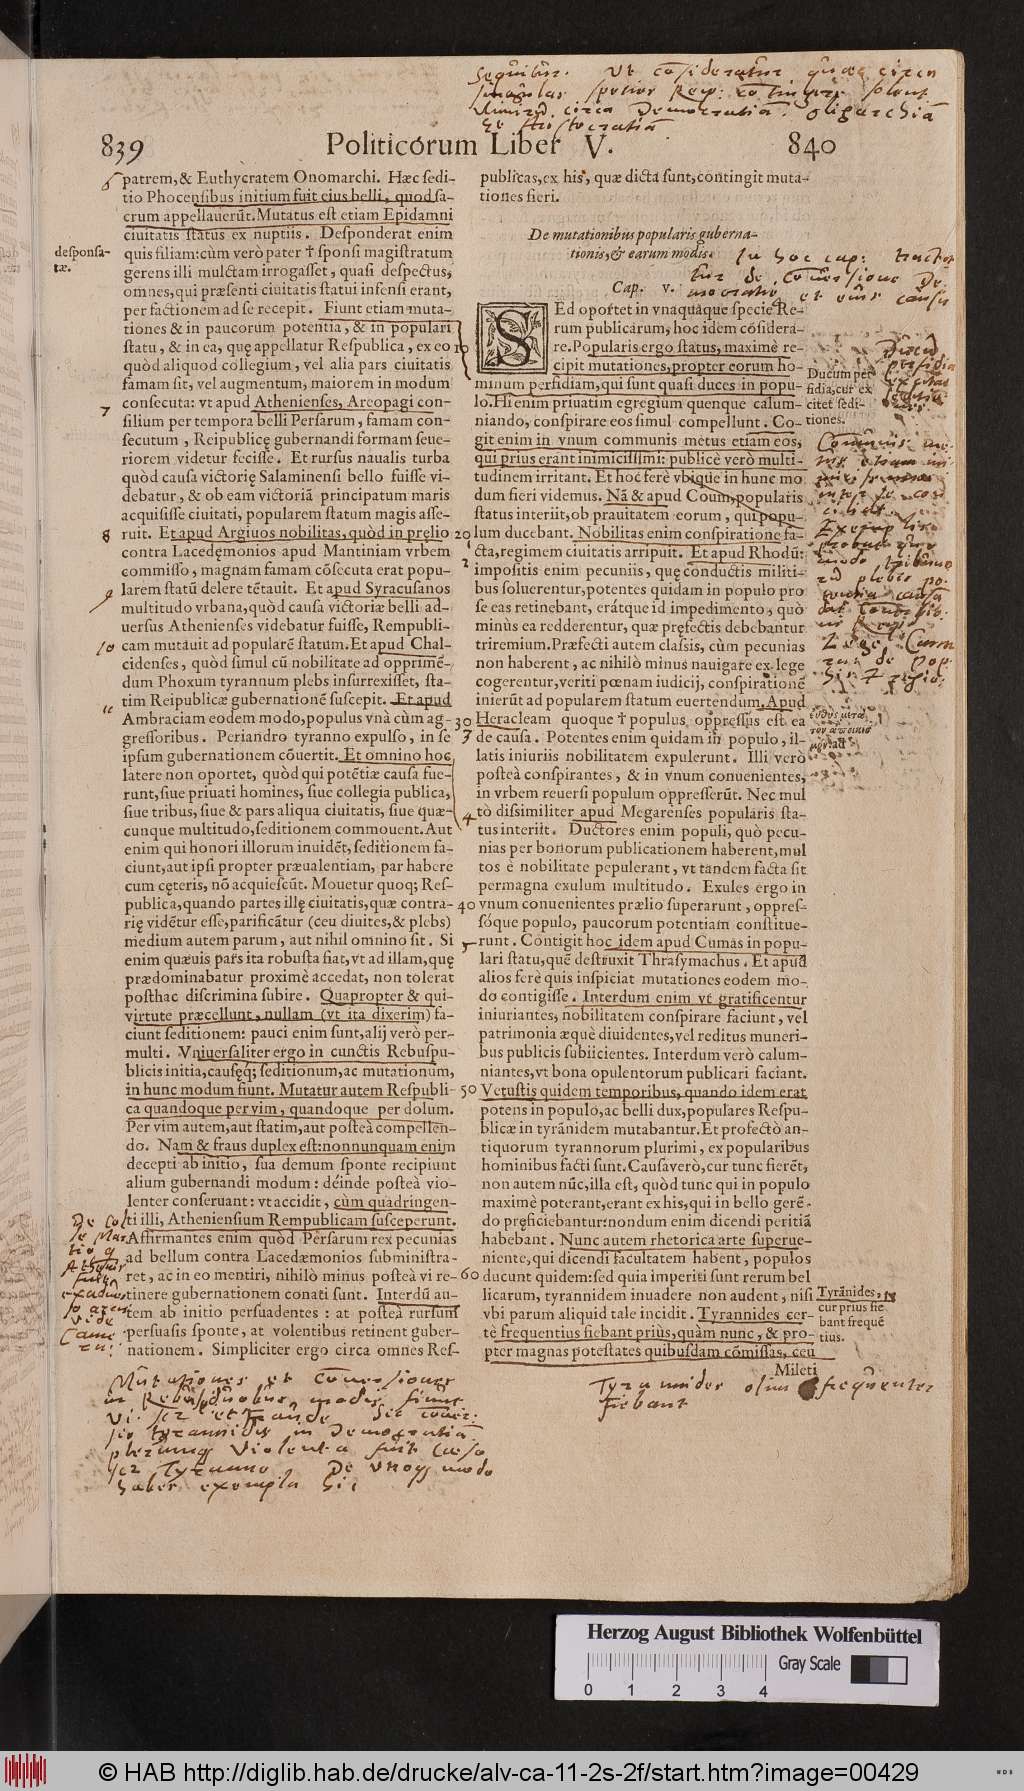 839
Politicorum Liber V.
840
patrem, & Euthycratem Onomarchi. Hæc sedi-
tio Phocensibus initium fuit eius belli, quod sa-
crum appellauerũt. Mutatus est etiam Epidamni
ciuitatis status ex nuptiis. Desponderat enim
quis filiam: cùm verò pater † sponsi magistratum
gerens illi mulctam irrogasset, quasi despectus,
omnes, qui præsenti ciuitatis statui infensi erant,
per factionem ad se recepit. Fiunt etiam muta-
tiones & in paucorum potentia, & in populari
statu, & in ea, quę appellatur Respublica, ex eo
quòd aliquod collegium, vel alia pars ciuitatis
famam sit, vel augmentum, maiorem in modum
consecuta: vt apud Athenienses, Areopagi con-
silium per tempora belli Persarum, famam con-
secutum, Reipublicę gubernandi formam seue-
riorem videtur fecisse. Et rursus naualis turba
quòd causa victorię Salaminensi bello fuisse vi-
debatur, & ob eam victoriã principatum maris
acquisisse ciuitati, popularem statum magis asse-
ruit. Et apud Argiuos nobilitas, quòd in pręlio
contra Lacedęmonios apud Mantiniam vrbem
commisso, magnam famam cõsecuta erat popu-
larem statũ delere tẽtauit. Et apud Syracusanos
multitudo vrbana, quòd causa victoriæ belli ad-
uersus Athenienses videbatur fuisse, Rempubli-
cam mutauit ad popularẽ statum. Et apud Chal-
cidenses, quòd simul cũ nobilitate ad opprimẽ-
dum Phoxum tyrannum plebs insurrexisset, sta-
tim Reipublicæ gubernationẽ suscepit. Et apud
Ambraciam eodem modo, populus vnà cùm ag-
gressoribus. Periandro tyranno expulso, in se
ipsum gubernationem cõuertit. Et omnino hoc
latere non oportet, quòd qui potẽtiæ causa fue-
runt, siue priuati homines, siue collegia publica,
siue tribus, siue & pars aliqua ciuitatis, siue quæ-
cunque multitudo, seditionem commouent. Aut
enim qui honori illorum inuidẽt, seditionem fa-
ciunt, aut ipsi propter præualentiam, par habere
cum cęteris, nõ acquiescũt. Mouetur quoq; Res-
publica, quando partes illę ciuitatis, quæ contra-
rię vidẽtur esse, parificãtur (ceu diuites, & plebs)
medium autem parum, aut nihil omnino sit. Si
enim quæuis pars ita robusta fiat, vt ad illam, quę
prædominabatur proximè accedat, non tolerat
posthac discrimina subire. Quapropter & qui-
virtute præcellunt, nullam (vt ita dixerim) fa-
ciunt seditionem: pauci enim sunt, alij verò per-
multi. Vniuersaliter ergo in cunctis Rebuspu-
blicis initia, causęq; seditionum, ac mutationum,
in hunc modum fiunt. Mutatur autem Respubli-
ca quandoque per vim, quandoque per dolum.
Per vim autem, aut statim, aut posteà compellen-
do. Nam & fraus duplex est: nonnunquam enim
decepti ab initio, sua demum sponte recipiunt
alium gubernandi modum: deinde posteà vio-
lenter conseruant: vt accidit, cùm quadringen-
ti illi, Atheniensium Rempublicam susceperunt.
Affirmantes enim quòd Persarum rex pecunias
ad bellum contra Lacedæmonios subministra-
ret, ac in eo mentiri, nihilò minus posteà vi re-
tinere gubernationem conati sunt. Interdũ au-
tem ab initio persuadentes: at posteà rursum
persuasis sponte, at volentibus retinent guber-
nationem. Simpliciter ergo circa omnes Res-
desponsa-
tæ.
6
7
8
9
10
11
10
20
30
40
50
60
publicas, ex his, quæ dicta sunt, contingit muta-
tiones fieri.
De mutationibus popularis guberna-
tionis, & earum modis.
Cap. v.
SEd oportet in vnaquaque specie Re-
rum publicarum, hoc idem cõsidera-
re. Popularis ergo status, maximè re-
cipit mutationes, propter eorum ho-
minum perfidiam, qui sunt quasi duces in popu-
lo. Hi enim priuatim egregium quenque calum-
niando, conspirare eos simul compellunt. Co-
git enim in vnum communis metus etiam eos,
qui prius erant inimicissimi: publicè verò multi-
tudinem irritant. Et hoc ferè vbique in hunc mo
dum fieri videmus. Nã & apud Coum, popularis
status interiit, ob prauitatem eorum, qui popu-
lum ducebant. Nobilitas enim conspiratione fa-
cta, regimem ciuitatis arripuit. Et apud Rhodũ:
impositis enim pecuniis, quę conductis militi-
bus soluerentur, potentes quidam in populo pro
se eas retinebant, erátque id impedimento, quò
minùs ea redderentur, quæ pręfectis debebantur
triremium. Præfecti autem classis, cùm pecunias
non haberent, ac nihilò minus nauigare ex lege
cogerentur, veriti pœnam iudicij, conspirationẽ
inierũt ad popularem statum euertendum. Apud
Heracleam quoque † populus oppressus est ea
de causa. Potentes enim quidam in populo, il-
latis iniuriis nobilitatem expulerunt. Illi verò
posteà conspirantes, & in vnum conuenientes,
in vrbem reuersi populum oppresserũt. Nec mul
tò dissimiliter apud Megarenses popularis sta-
tus interiit. Ductores enim populi, quò pecu-
nias per bonorum publicationem haberent, mul
tos è nobilitate pepulerant, vt tandem facta sit
permagna exulum multitudo. Exules ergo in
vnum conuenientes prælio superarunt, oppres-
sóque populo, paucorum potentiam constitue-
runt. Contigit hoc idem apud Cumas in popu-
lari statu, quẽ destruxit Thrasymachus. Et apud
alios ferè quis inspiciat mutationes eodem mo-
do contigisse. Interdum enim vt gratificentur
iniuriantes, nobilitatem conspirare faciunt, vel
patrimonia æquè diuidentes, vel reditus muneri-
bus publicis subiicientes. Interdum verò calum-
niantes, vt bona opulentorum publicari faciant.
Vetustis quidem temporibus, quando idem erat
potens in populo, ac belli dux, populares Respu-
blicæ in tyrãnidem mutabantur. Et profectò an-
tiquorum tyrannorum plurimi, ex popularibus
hominibus facti sunt. Causa verò, cur tunc fierẽt,
non autem nũc, illa est, quòd tunc qui in populo
maximè poterant, erant ex his, qui in bello gerẽ-
do pręficiebantur: nondum enim dicendi peritiã
habebant. Nunc autem rhetorica arte superue-
niente, qui dicendi facultatem habent, populos
ducunt quidem: sed quia imperiti sunt rerum bel
licarum, tyrannidem inuadere non audent, nisi
vbi parum aliquid tale incidit. Tyrannides cer-
tè frequentius fiebant prius, quàm nunc, & pro-
pter magnas potestates quibusdam cõmissas, ceu
Mileti
Ducum per
fidia, cur ex
citet sedi-
tiones.
Tyrãnides,
cur prius fie
bant frequẽ
tius.
Tyrannides olim frequenter
fiebant
Herzog August Bibliothek Wolfenbüttel
Gray Scale
0 1 2 3 4
© HAB http://diglib.hab.de/drucke/alv-ca-11-2s-2f/start.htm?image=00429